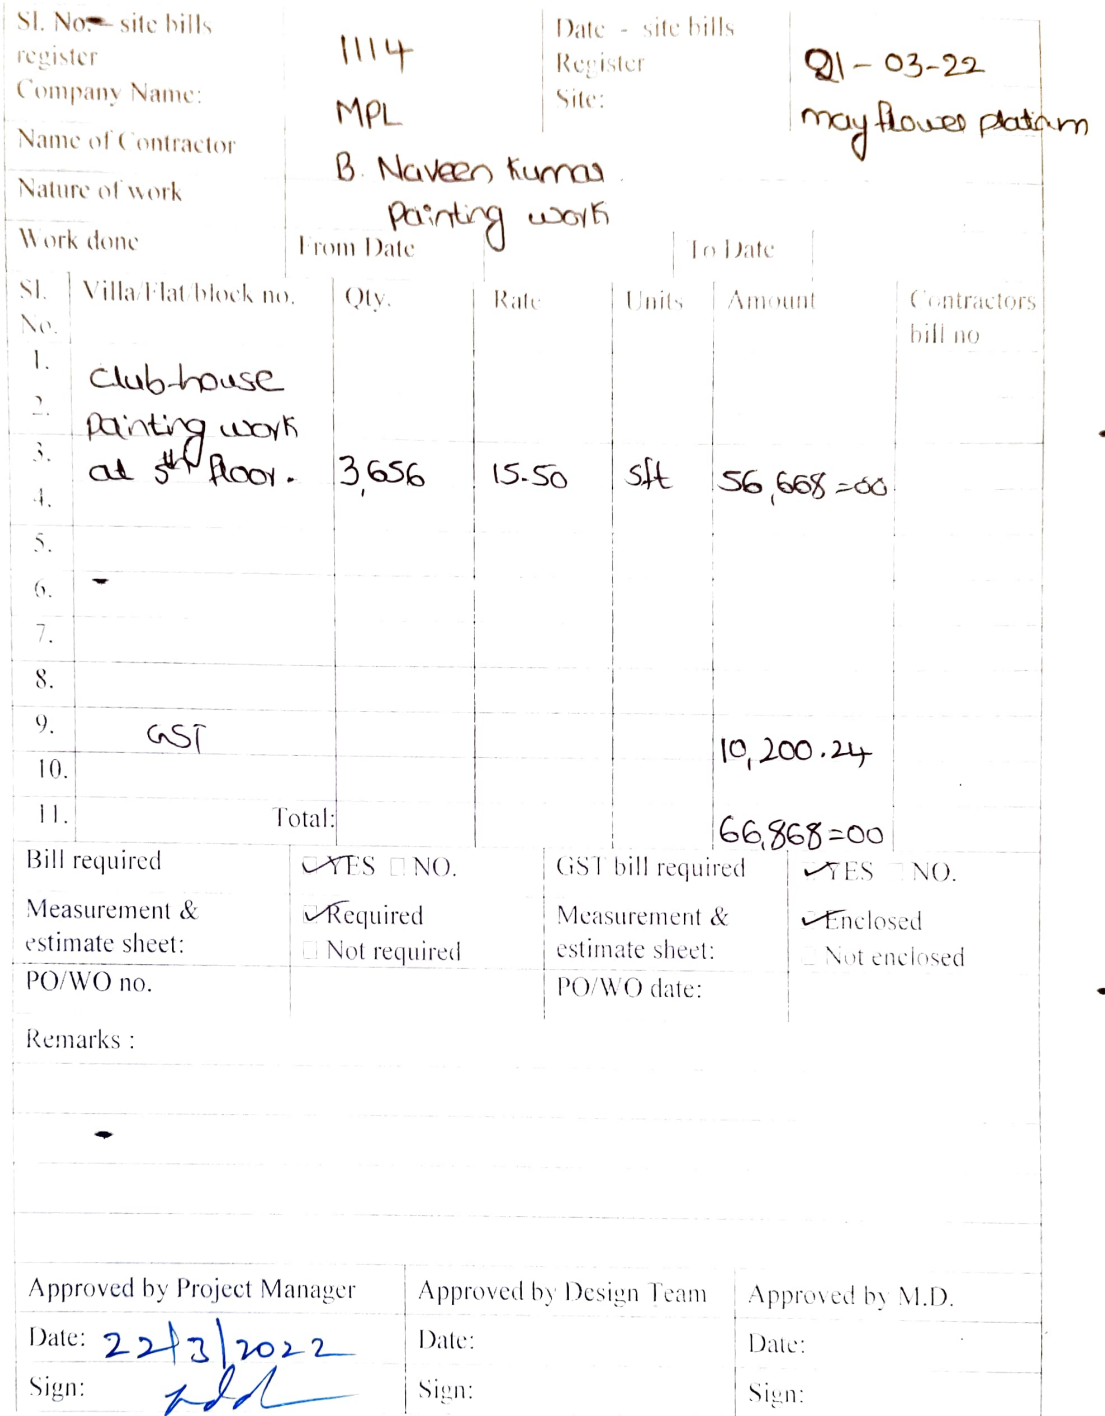 Sl. No. - site bills register 1114 Date - site bills Register 21-03-22
Company Name: MPL Site: may flower platinm
Name of Contractor B. Naveen Kumar.
Nature of work Painting work
Work done From Date To Date
Sl. No. Villa/Flat/block no. Qty. Rate Units Amount Contractors bill no
1. Club-house
2. Painting work
3. at 5th floor. 3,656 15.50 sft 56,668=00
4.
5.
6. -
7.
8.
9. GST 10,200.24
10.
11. Total: 66,868=00
Bill required YES NO. GST bill required YES NO.
Measurement & estimate sheet: Required Not required Measurement & estimate sheet: Enclosed Not enclosed
PO/WO no. PO/WO date:
Remarks :
Approved by Project Manager Approved by Design Team Approved by M.D.
Date: 22/3/2022 Date: Date:
Sign: Sign: Sign: